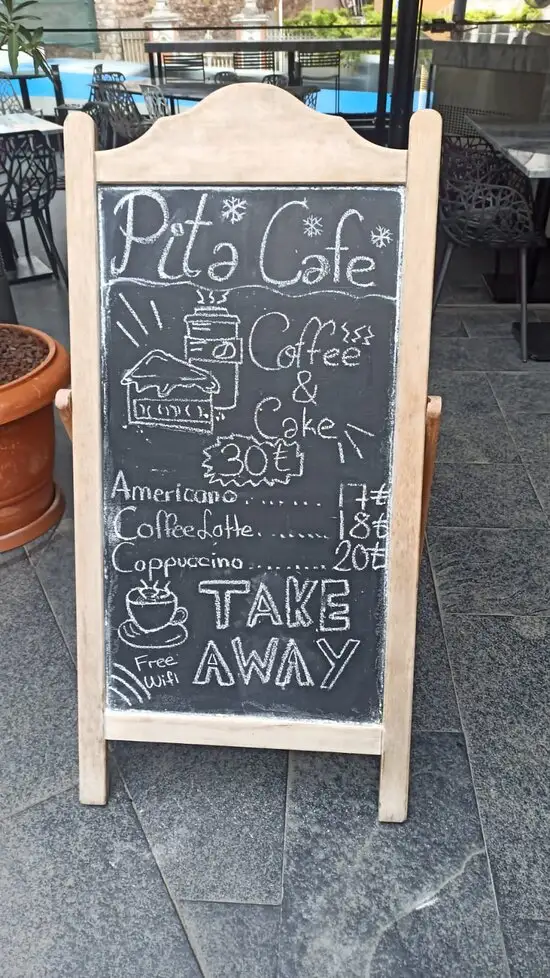 Pita Cafe
Coffee
&
Cake
30₺
Americano ........ 17₺
Coffee Latte ........ 18₺
Cappuccino ........ 20₺
TAKE
AWAY
Free
Wifi